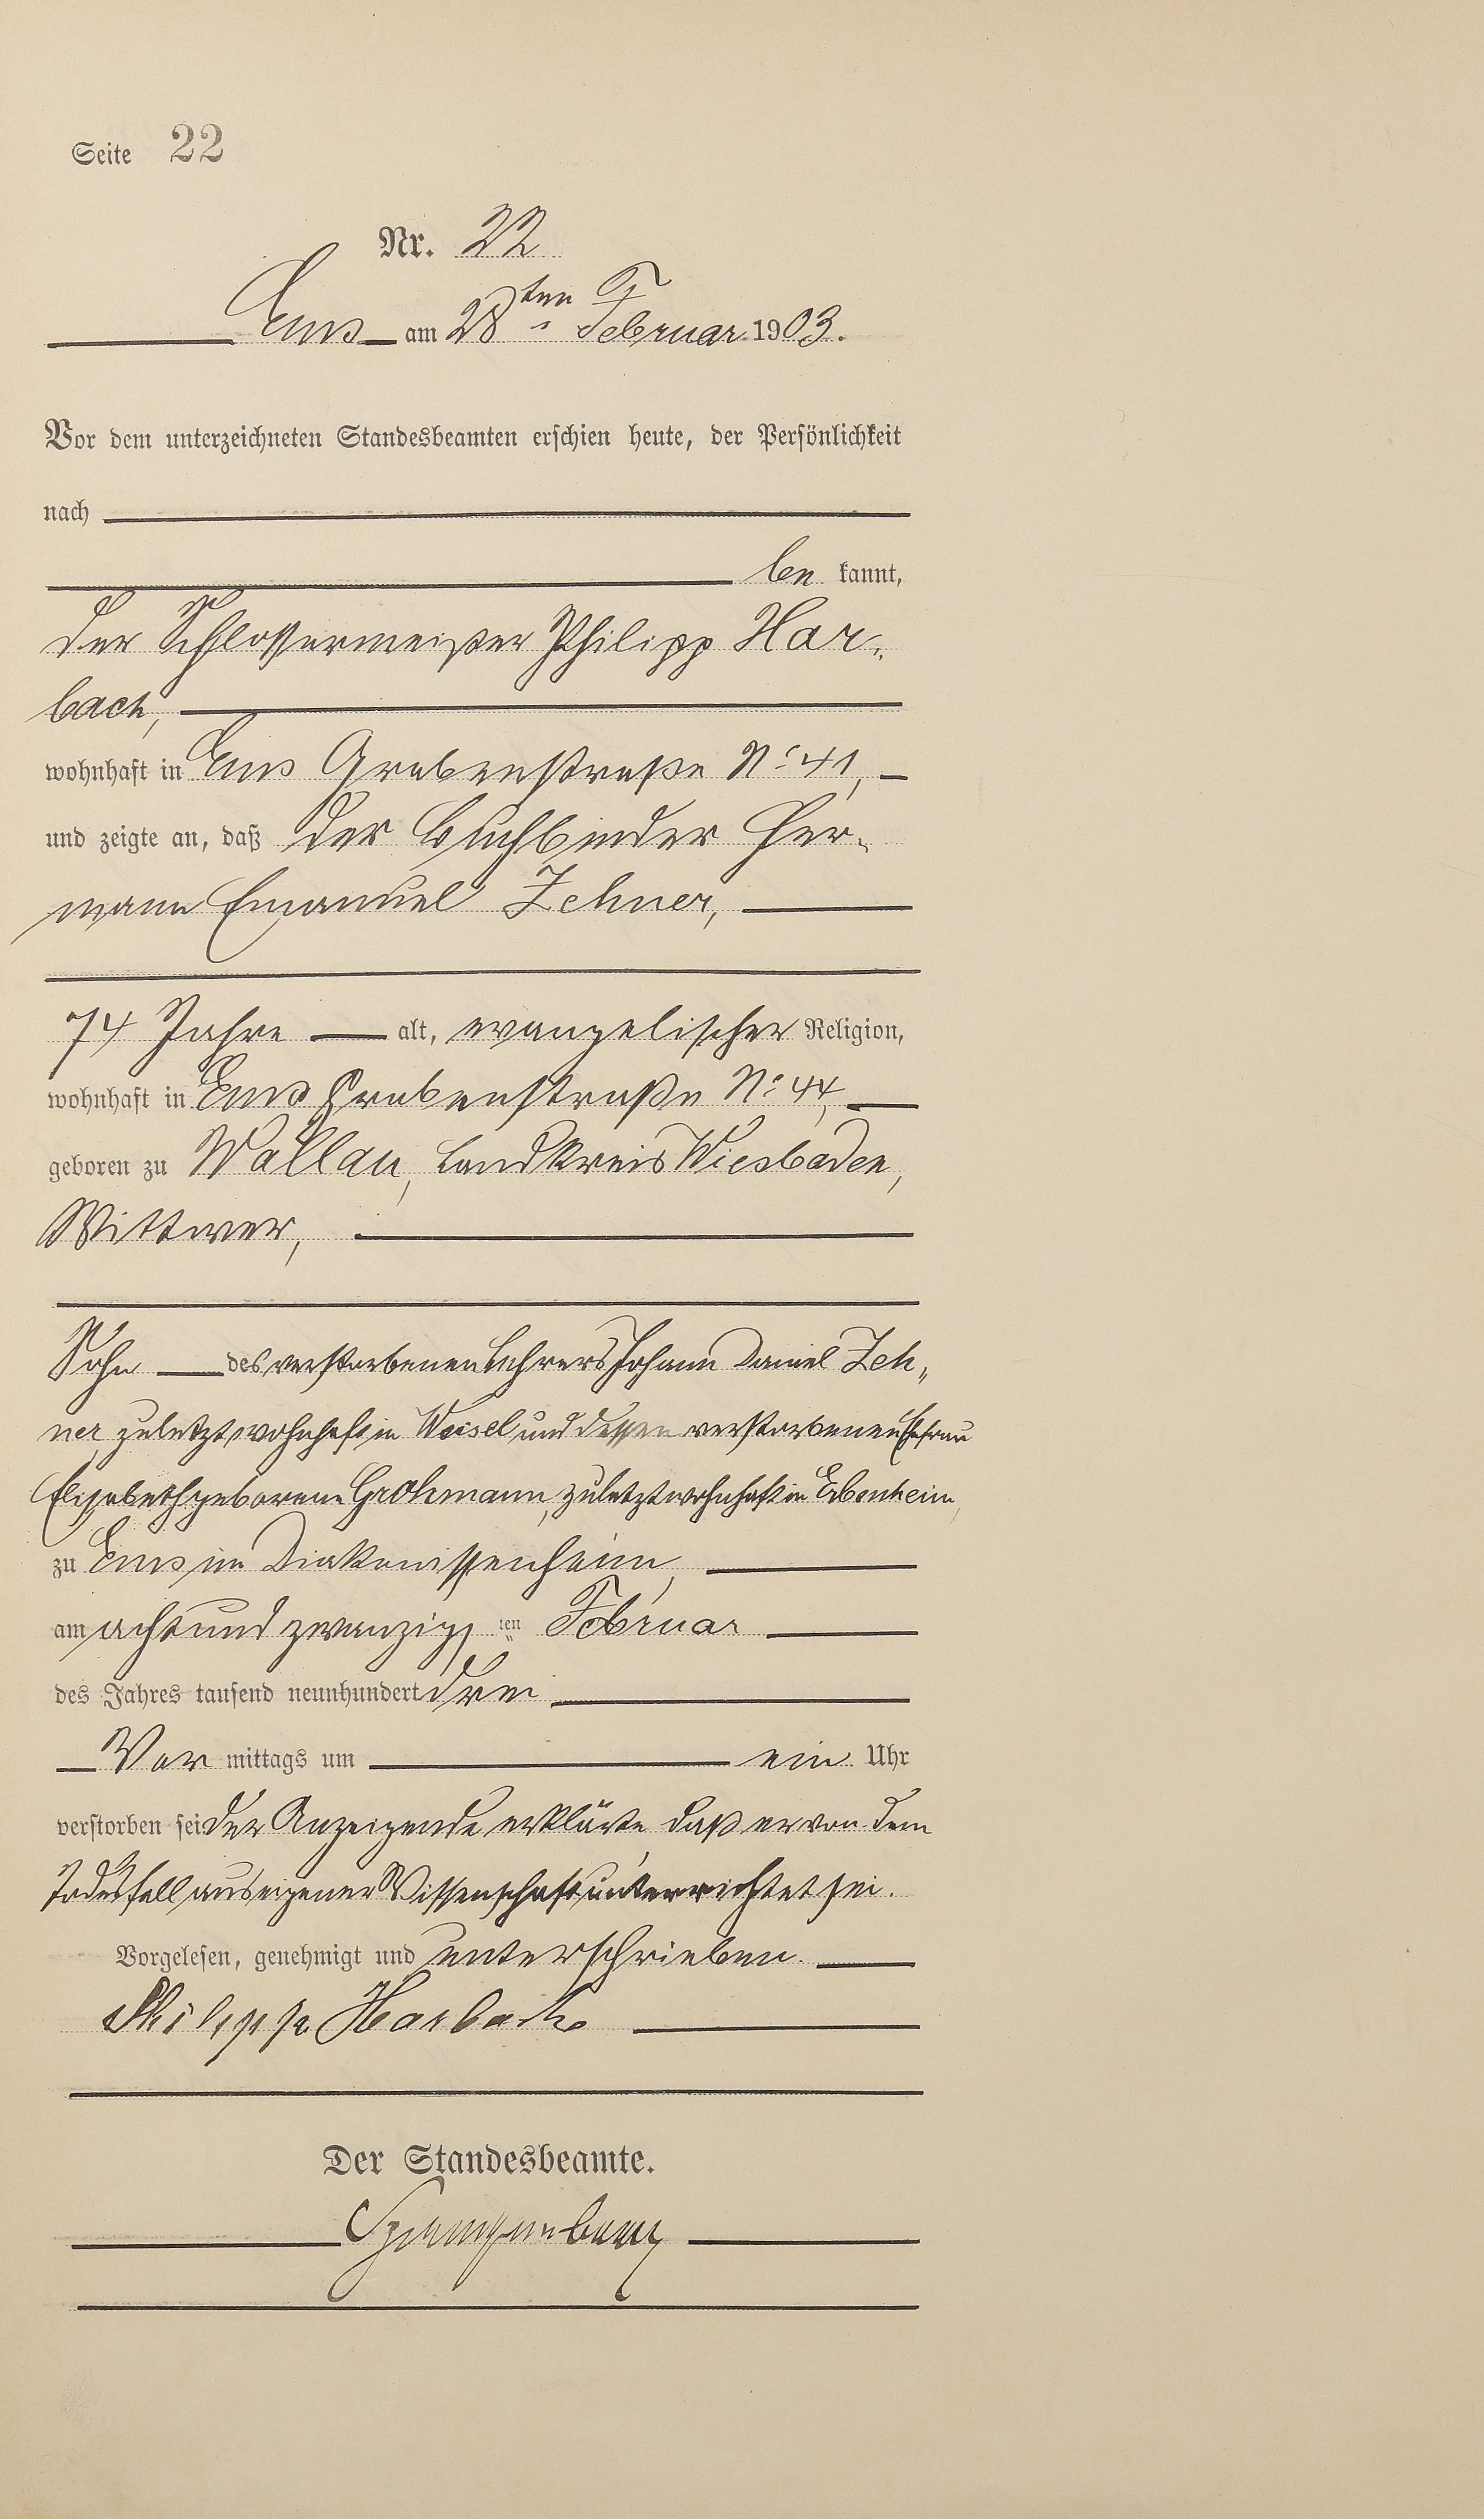 Seite 22
Nr. 22
Ems am 28ten Februar 1903.
Vor dem unterzeichneten Standesbeamten erschien heute, der Persönlichkeit
nach
be kannt,
der Schlossermeister Philipp Har-
bach,
wohnhaft in Ems Grabenstraße No 41,
und zeigte an, daß der Buchbinder Her-
mann Emanuel Zehner,
74 Jahre alt, evangelischer Religion,
wohnhaft in Ems Grabenstraße No 44,
geboren zu Wallau, Landkreis Wiesbaden,
Wittwer,
Sohn des verstorbenen Lehrers Johann Daniel Zeh-
ner, zuletzt wohnhaft in Weisel und dessen verstorbenen Ehefrau
Elisabeth geborene Grohmann, zuletzt wohnhaft in Erbenheim,
zu Ems im Diakonissenheim,
am achtundzwanzigsten Februar
des Jahres tausend neunhundert drei
Vor mittags um ein Uhr
verstorben sei der Anzeigende erklärte daß er von dem
Todesfall aus eigener Wissenschaft unterrichtet sei.
Vorgelesen, genehmigt und unterschrieben.
Philipp Harbach
Der Standesbeamte.